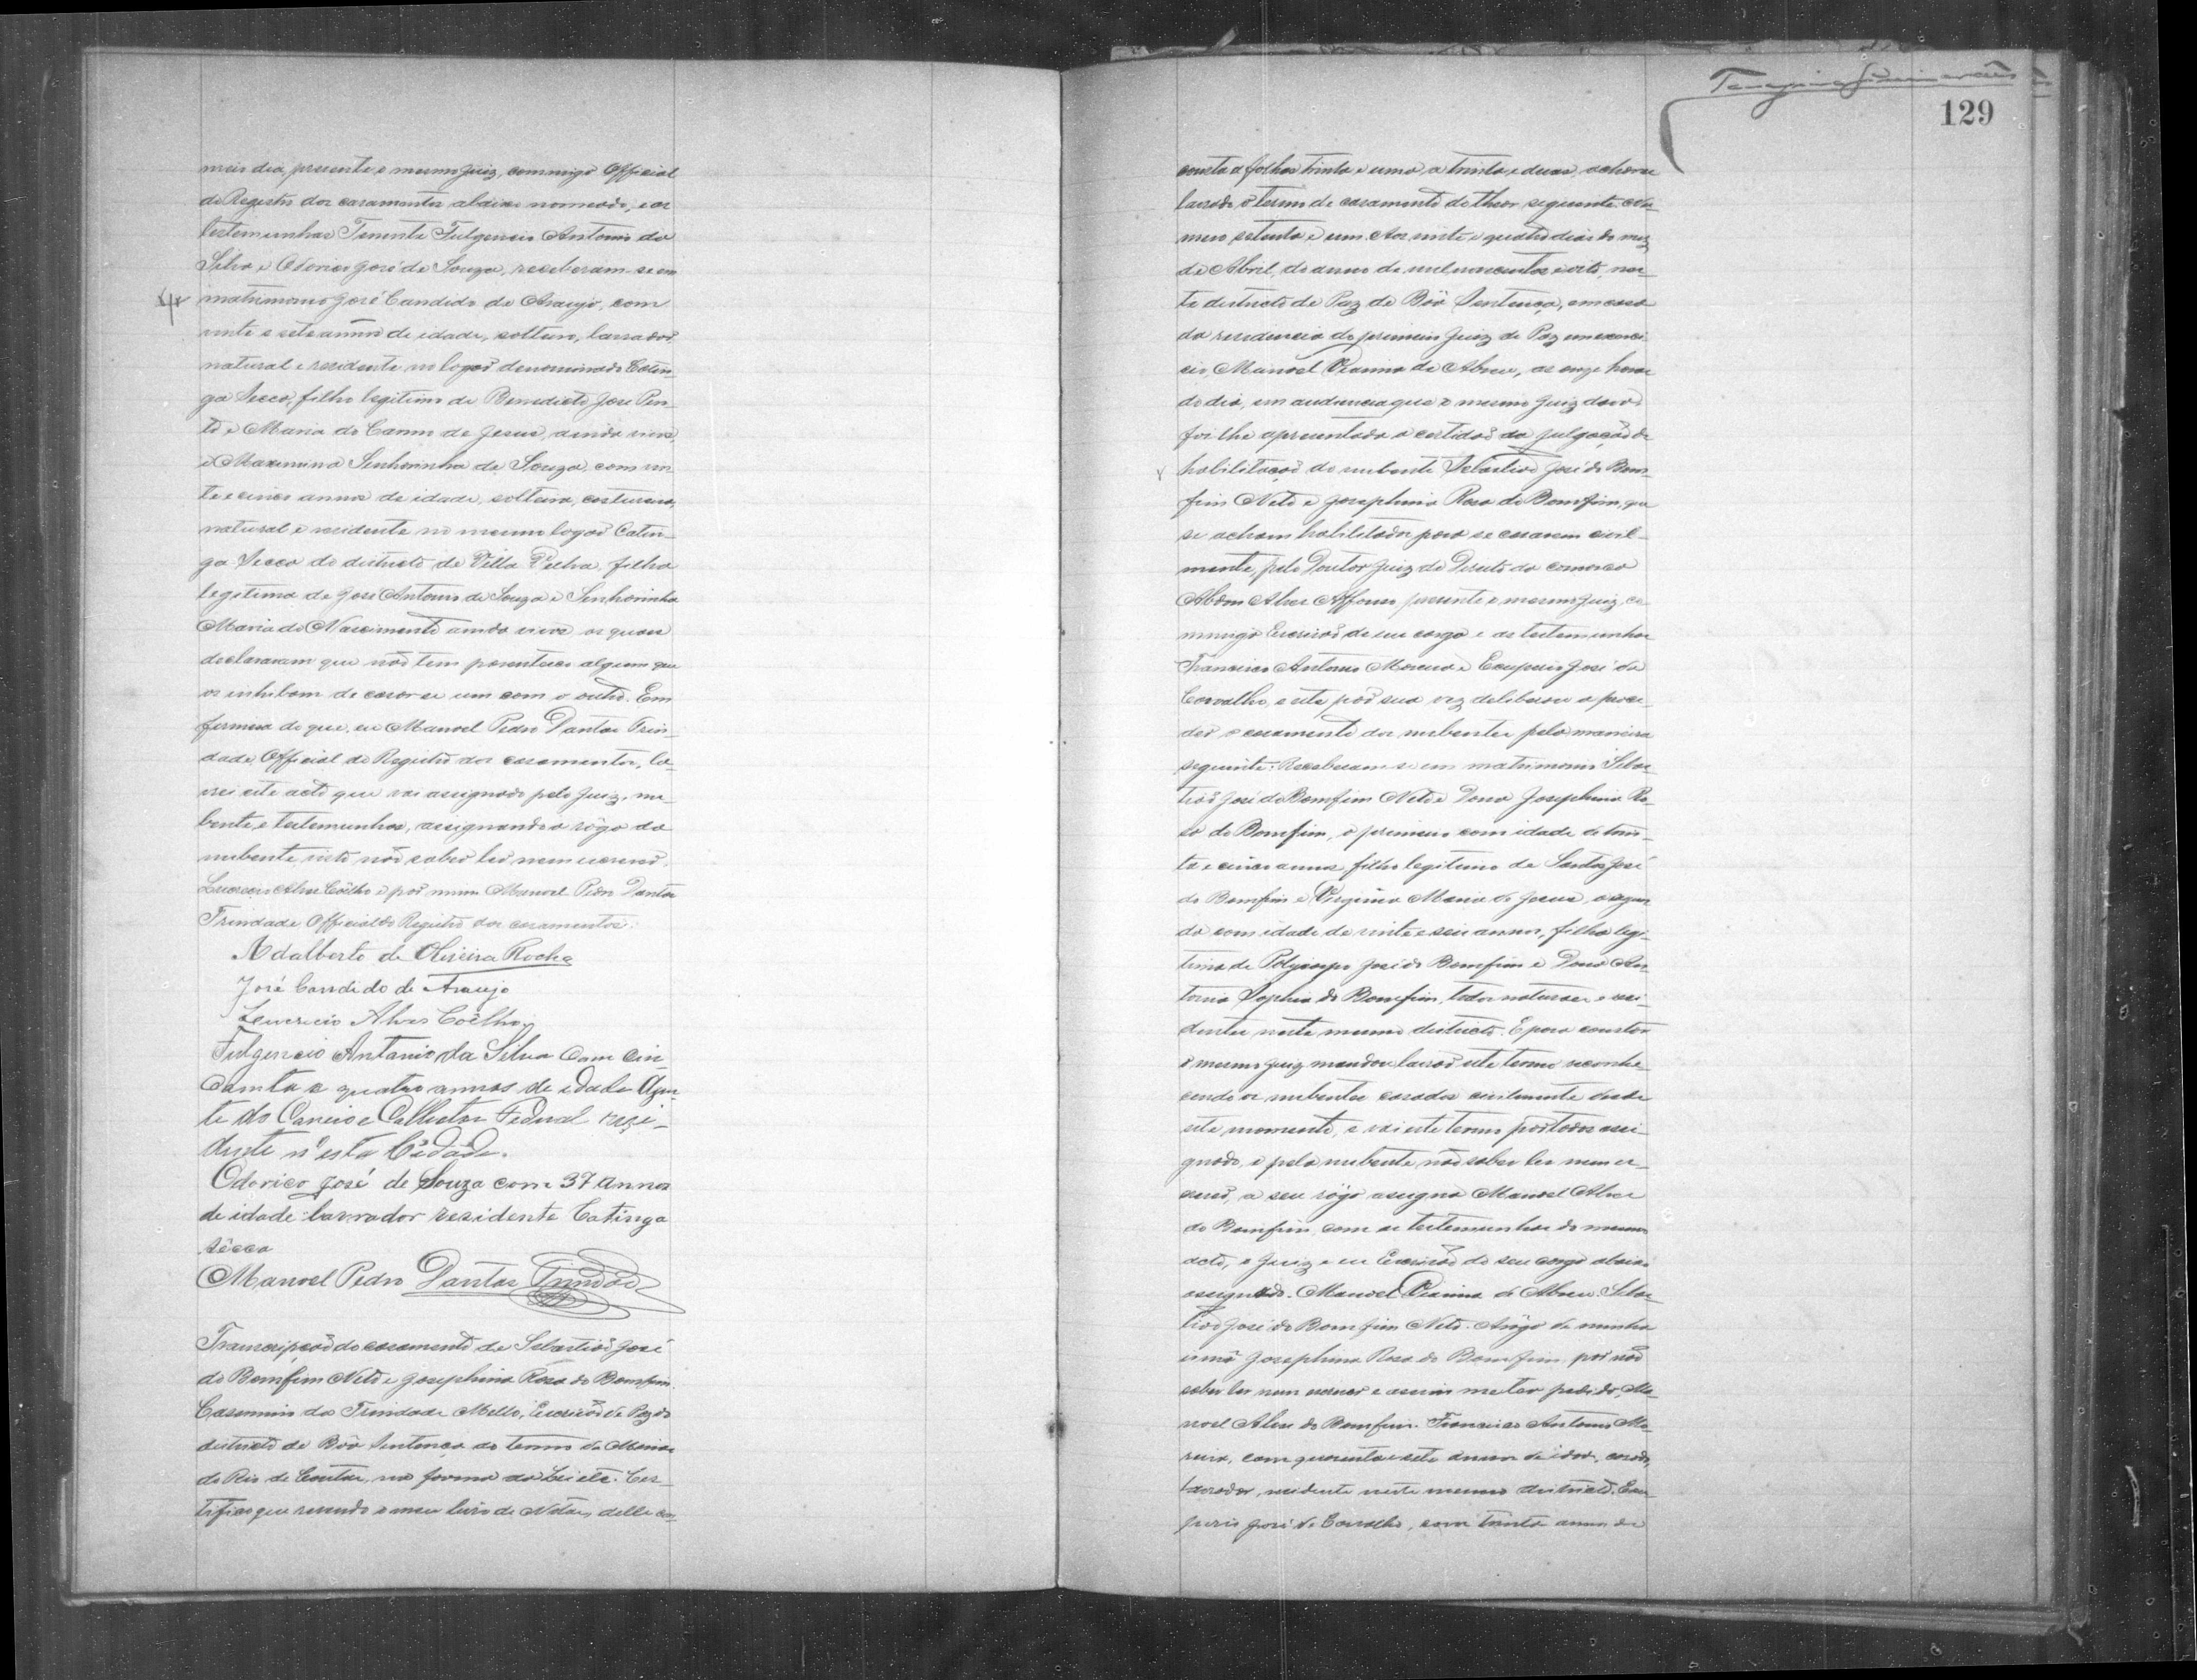 meio dia, presente o mesmo Juiz, commigo Official
do Registro dos casamentos abaixo nomeado, e as
testemunhas Tenente Fulgencio Antonio da
Silva e Odorico José de Souza, receberam-se em
matrimonio José Candido de Araujo, com
vinte e sete annos de idade, solteiro, lavrador,
natural e residente no logar denominado Catin-
ga Secca, filho legitimo de Benedicto José Pin-
to e Maria do Carmo de Jesus, ainda vivos,
e Maximina Senhorinha de Souza, com vin-
te e cinco annos de idade, solteira, costureira,
natural e residente no mesmo logar Catin-
ga Secca do districto de Villa Velha, filha
legitima de José Antonio de Souza e Senhorinha
Maria do Nascimento ainda vivos os quaes
declararam que não tem parentesco algum que
os inhibam de casar-se um com o outro. Em
firmesa do que, eu Manoel Pedro Dantas Trin-
dade, Official do Registro dos casamentos, la-
vrei este acto que vai assignado pelo Juiz, nu-
bente, e testemunhas, assignando a rôgo da
nubente visto não saber ler nem escrever,
Alves Coêlho e por mim Manoel Pedro Dantas
Trindade Official do Registro dos casamentos.
Adalberto de Oliveira Rocha
José Candido de Araujo
Alves Coêlho
Fulgencio Antonio da Silva com cin-
coenta e quatro annos de idade Agen-
te do Correio e Collector Federal resi-
dente n'esta Cidade.
Odorico José de Souza com 37 annos
de idade lavrador residente Catinga
sêcca
Manoel Pedro Dantas Trindade
Transcripção do casamento de Sebastião José
do Bomfim Neto e Josephina Rosa do Bomfim.
da Trindade Mello, Escrivão de Paz do
districto de Bôa Sentença do termo de Minas
do Rio de Contas, na forma da Lei etc. Cer-
tifico que revendo o meu livro de Notas delle con-
129
consta a folhas trinta e uma, a trinta e duas, acha-se
lavrado o termo de casamento do theor seguinte. Nu-
mero setenta e um. Aos vinte e quatro dias do mez
de Abril, do anno de mil novecentos e oito, nes-
te districto de Paz de Bôa Sentença, em casa
da residencia do primeiro Juiz de Paz em exerci-
cio, Manoel Vianna de Abreu, as onze horas
do dia, em audiencia que o mesmo Juiz dava
foi lhe apresentada a certidão da julgação de
habilitação do nubente Sebastião José do Bom-
fim Neto e Josephina Rosa do Bomfim, que
se acham habilitados para se casarem civil-
mente, pelo Doutor Juiz de Direito da comarca
Abdon Alves Affonso, presente o mesmo Juiz, co-
mmigo Escrivão de seu cargo e as testemunhas
Francisco Antonio Moreira e José de
Carvalho, e este por sua vez deliberou a proce-
der o casamento dos nubentes pela maneira
seguinte: Receberam-se em matrimonio Sebas-
tião José do Bomfim Neto e Dona Josephina Ro-
sa do Bomfim, o primeiro com idade de trin-
ta e cinco annos, filho legitimo de Santos José
do Bomfim e Virginia Maria de Jesus, a segun-
da com idade de vinte e seis annos, filha legi-
tima de Polycarpo José do Bomfim e Dona An-
tonia Sophia do Bomfim, todos naturaes e resi-
dentes neste mesmo districto. E para constar
o mesmo Juiz mandou lavrar este termo reconhe-
cendo os nubentes casados civilmente desde
este momento, e vai este termo por todos assi-
gnado, e pela nubente não saber ler nem es-
crever, a seu rôgo assigna Manoel Alves
do Bomfim, com as testemunhas do mesmo
acto, o Juiz e eu Escrivão do seu cargo abaixo
assignado. Manoel Vianna de Abreu. Sebas-
tião José do Bomfim Neto. Arôgo de minha
irmã Josephina Rosa do Bomfim por não
saber ler nem escrever e assim me ter pedido, Ma-
noel Alves do Bomfim. Francisco Antonio Mo-
reira, com quarenta e sete annos de idade, casado,
lavrador, residente neste mesmo districto.
José de Carvalho, com trinta annos de